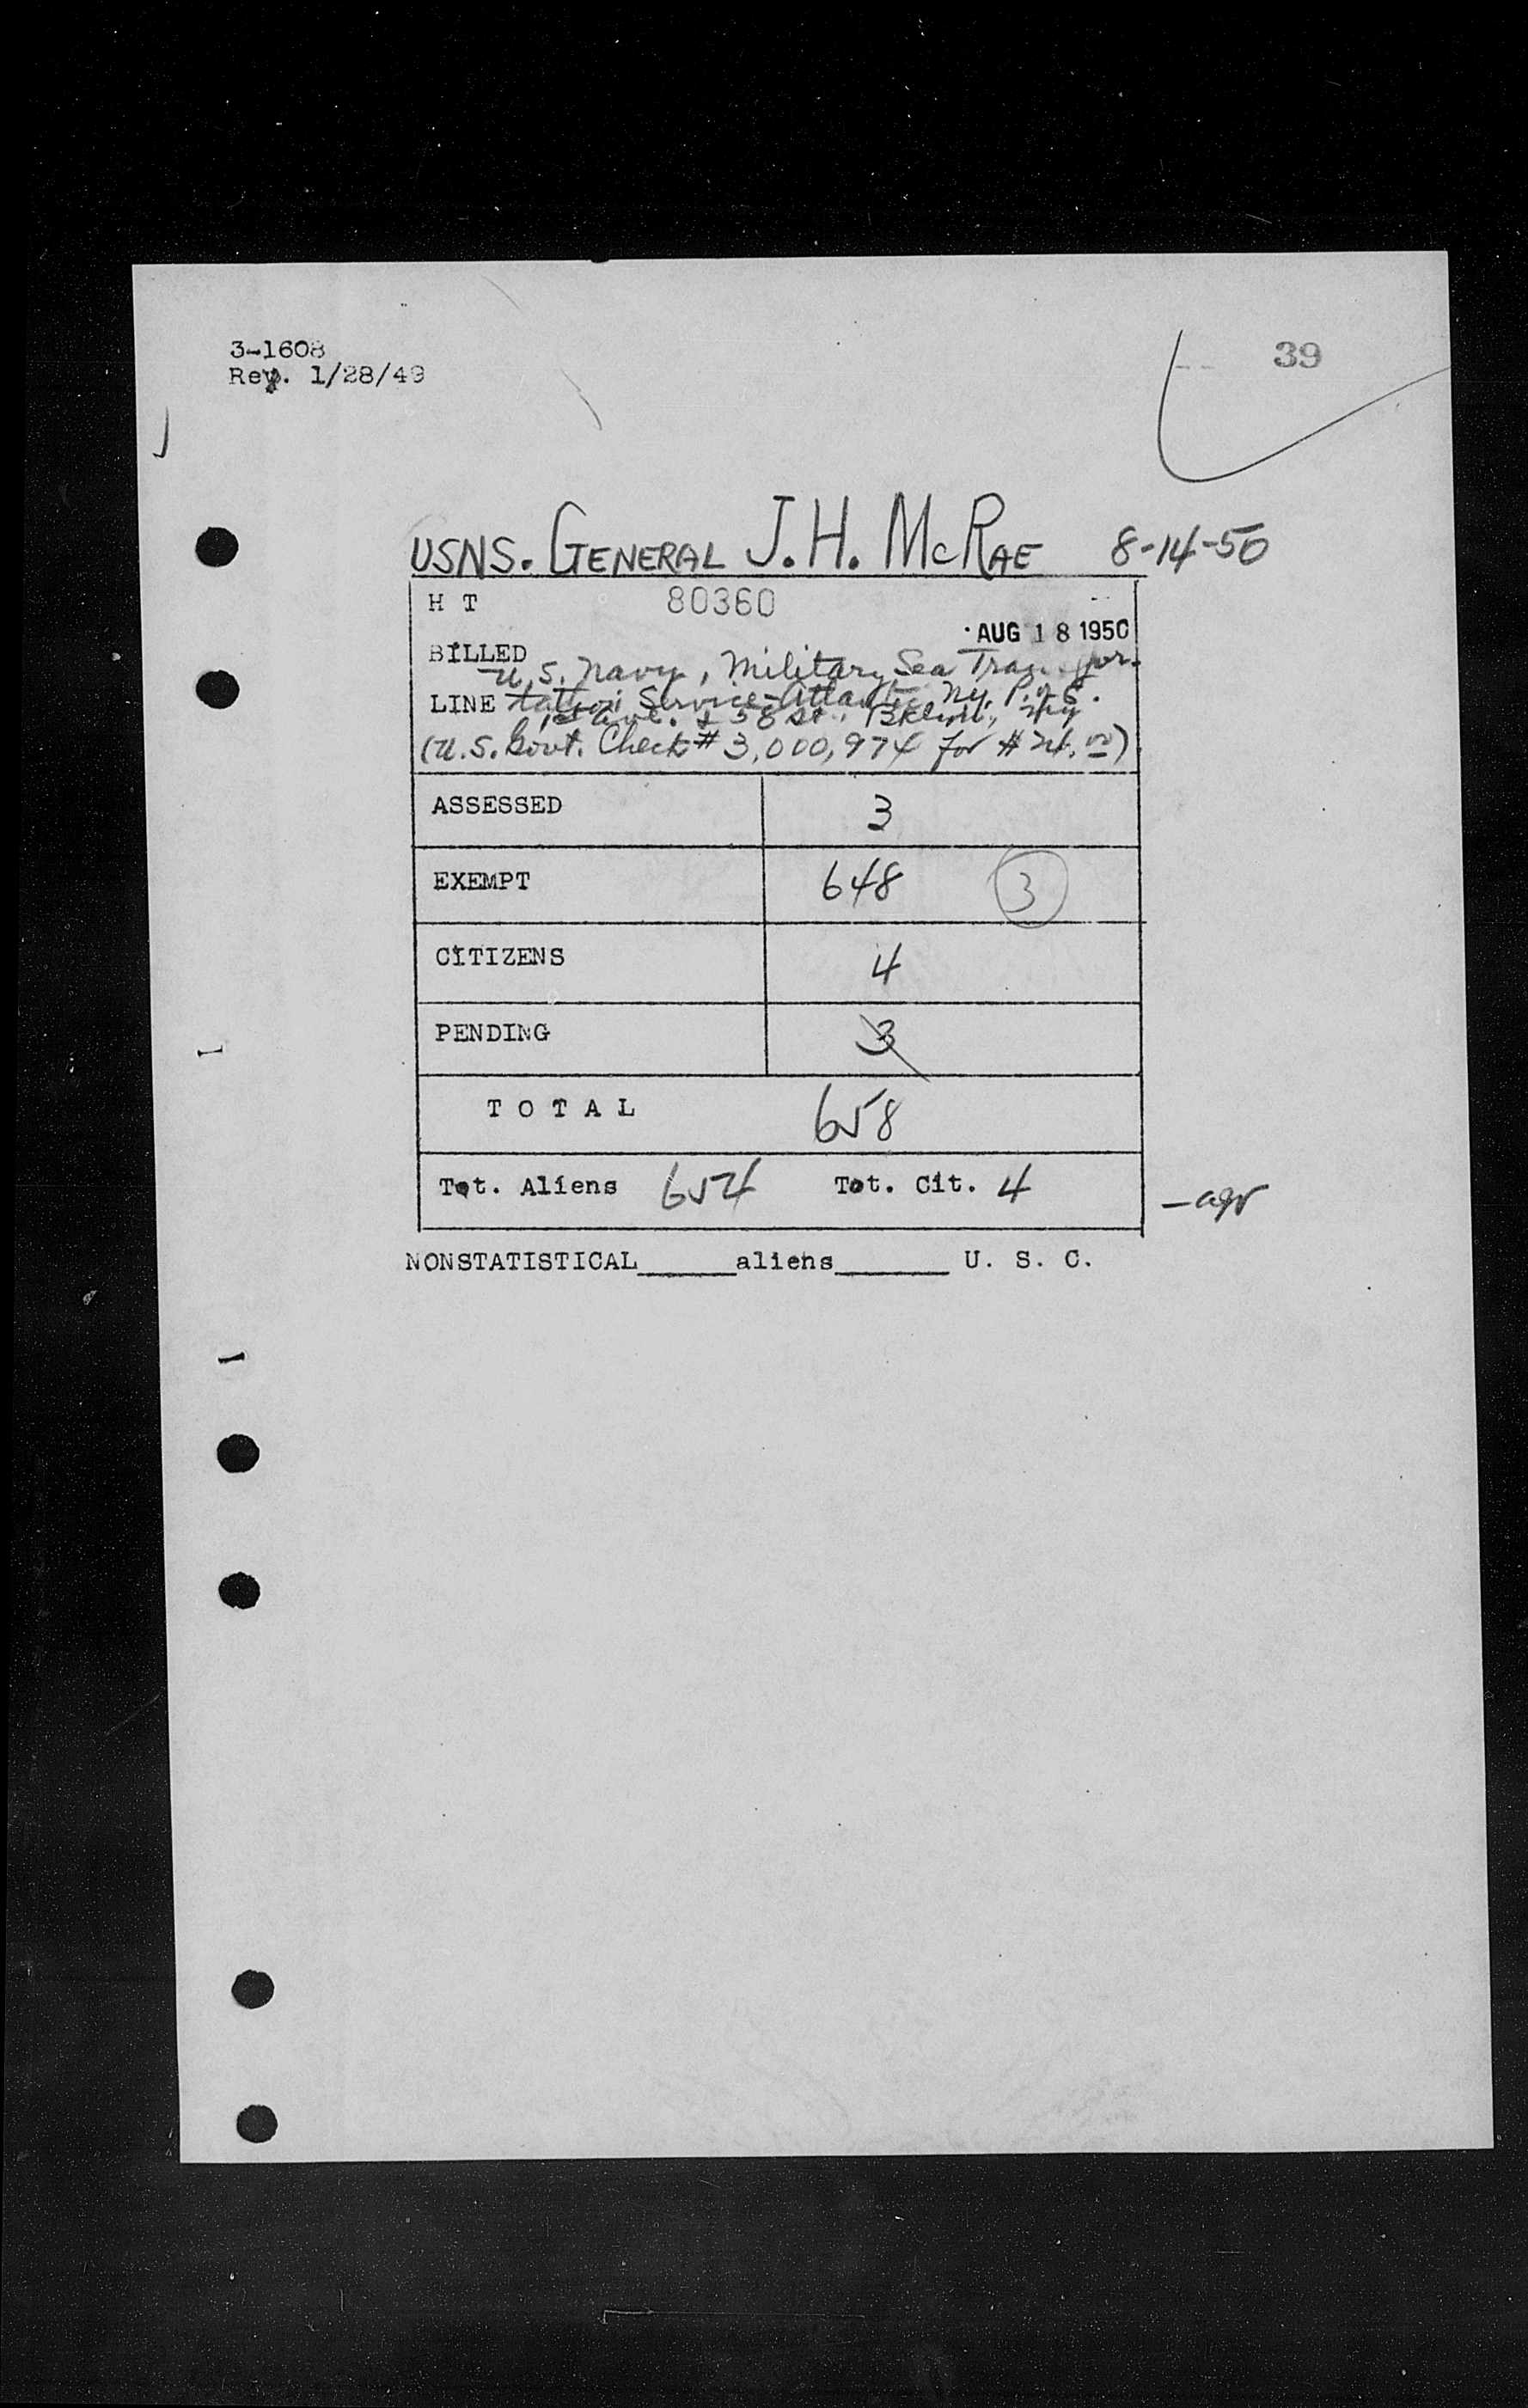 3-1608
39
Rev. 1/28/49
USNS. GENERAL J.H. McRAE 8-14-50
H T 80360
AUG 18 1950
BILLED
U.S. Navy, Military Sea Transpor-
LINE tation Service-Atlantic, NY. P. of E.
1st Ave. & 58 St., Bklyn., NY
(U.S. Govt. Check # 3,000,974 for $ 24.00)
ASSESSED 3
EXEMPT 648 3
CITIZENS 4
PENDING 3
T O T A L 658
Tot. Aliens 654 Tot. Cit. 4
NONSTATISTICAL______aliens_______ U. S. C.